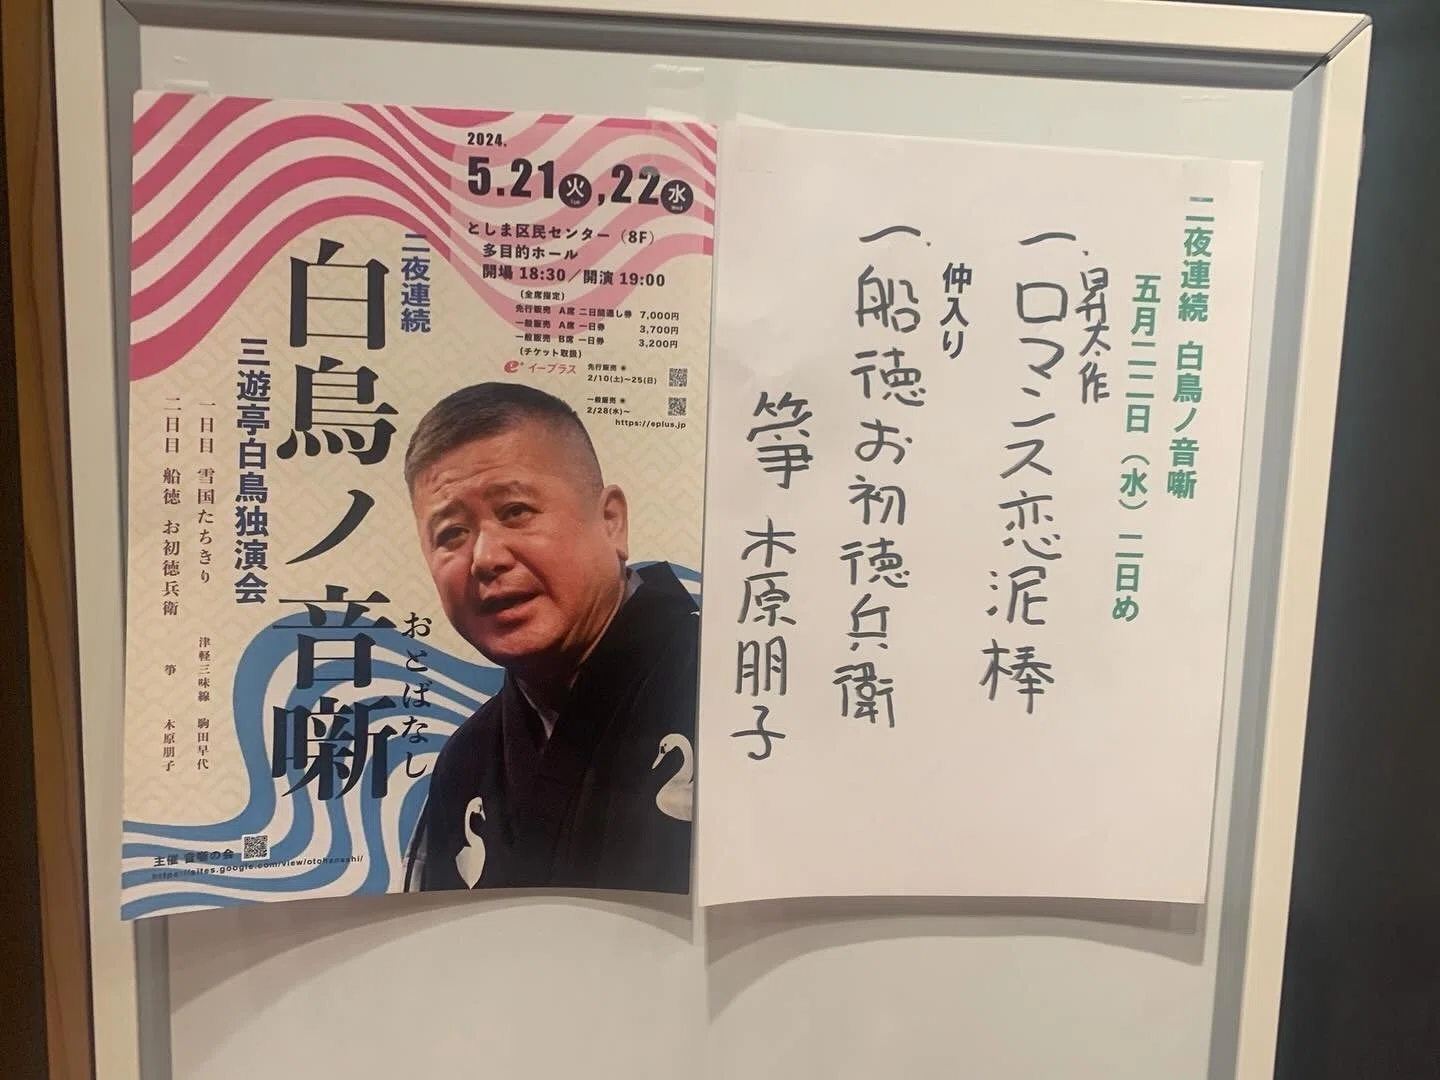 2024.
5.21火,22水
Tue
Wed
としま区民センター（8F）
多目的ホール
開場 18:30／開演 19:00
(全席指定)
先行販売 A席 二日間通し券 7,000円
一般販売 A席 一日券 3,700円
一般販売 B席 一日券 3,200円
(チケット取扱)
e+ イープラス
先行販売
2/10(土)～25(日)
一般販売
2/28(水)～
https://eplus.jp
二夜連続
白鳥ノ音噺
おとばなし
三遊亭白鳥独演会
一日目 雪国たちきり 津軽三味線 駒田早代
二日目 船徳 お初徳兵衛 箏 木原朋子
主催 音噺の会
https://sites.google.com/view/otohanashi/
二夜連続 白鳥ノ音噺
五月二二日（水）二日め
昇太・作
一、ロマンス恋泥棒
仲入り
一、船徳お初徳兵衛
箏 木原朋子